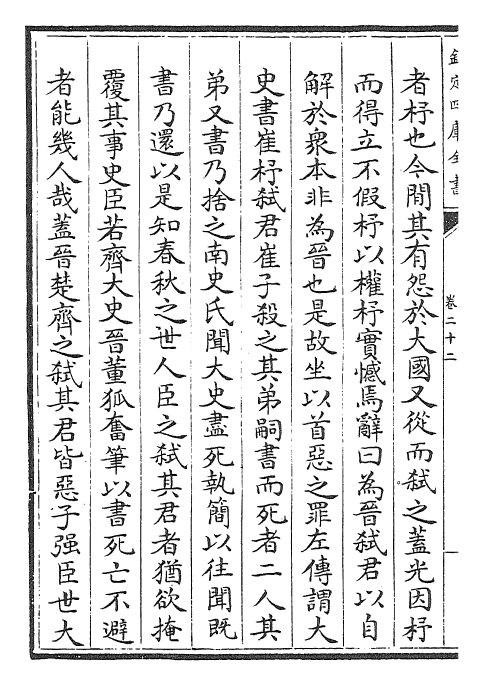 欽定四庫全書
卷二十二
者杼也今間其有怨於大國又從而弑之蓋光因杼
而得立不假杼以權杼實憾焉辭曰為晉弑君以自
解於衆本非為晉也是故坐以首惡之罪左傳謂大
史書崔杼弑君崔子殺之其弟嗣書而死者二人其
弟又書乃捨之南史氏聞大史盡死執簡以往聞既
書乃還以是知春秋之世人臣之弑其君者猶欲掩
覆其事史臣若齊大史晉董狐奮筆以書死亡不避
者能幾人哉蓋晉楚齊之弑其君皆惡子强臣世大